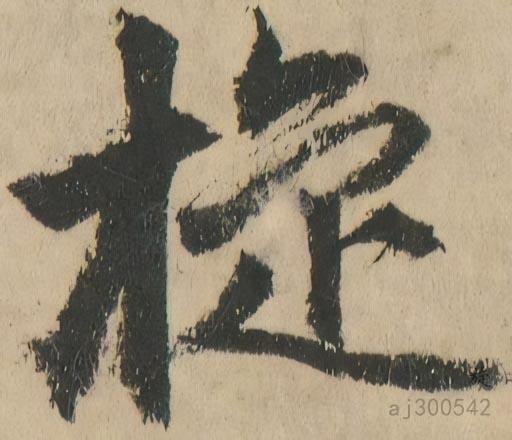 旋
aj300542